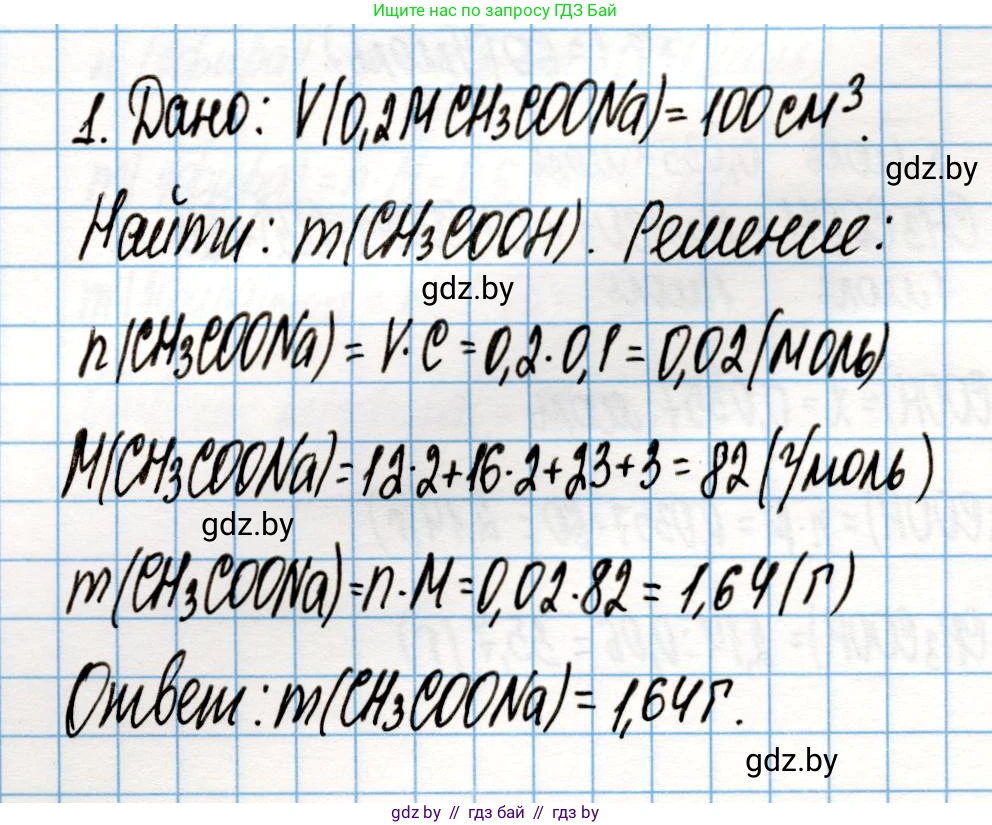 Ищите нас по запросу ГДЗ Бай
1. Дано: V(0,2М CH3COONa)= 100 см³.
gdz.by
Найти: m(CH3COOH). Решение:
gdz.by
n(CH3COONa) = V·C = 0,2·0,1 = 0,02 (моль)
M(CH3COONa)=12·2+16·2+23+3 = 82 (г/моль)
gdz.by
m(CH3COONa)=n·M=0,02·82 = 1,64 (г)
Ответ: m(CH3COONa) = 1,64 г.
gdz.by
gdz.by // гдз бай // gdz.by